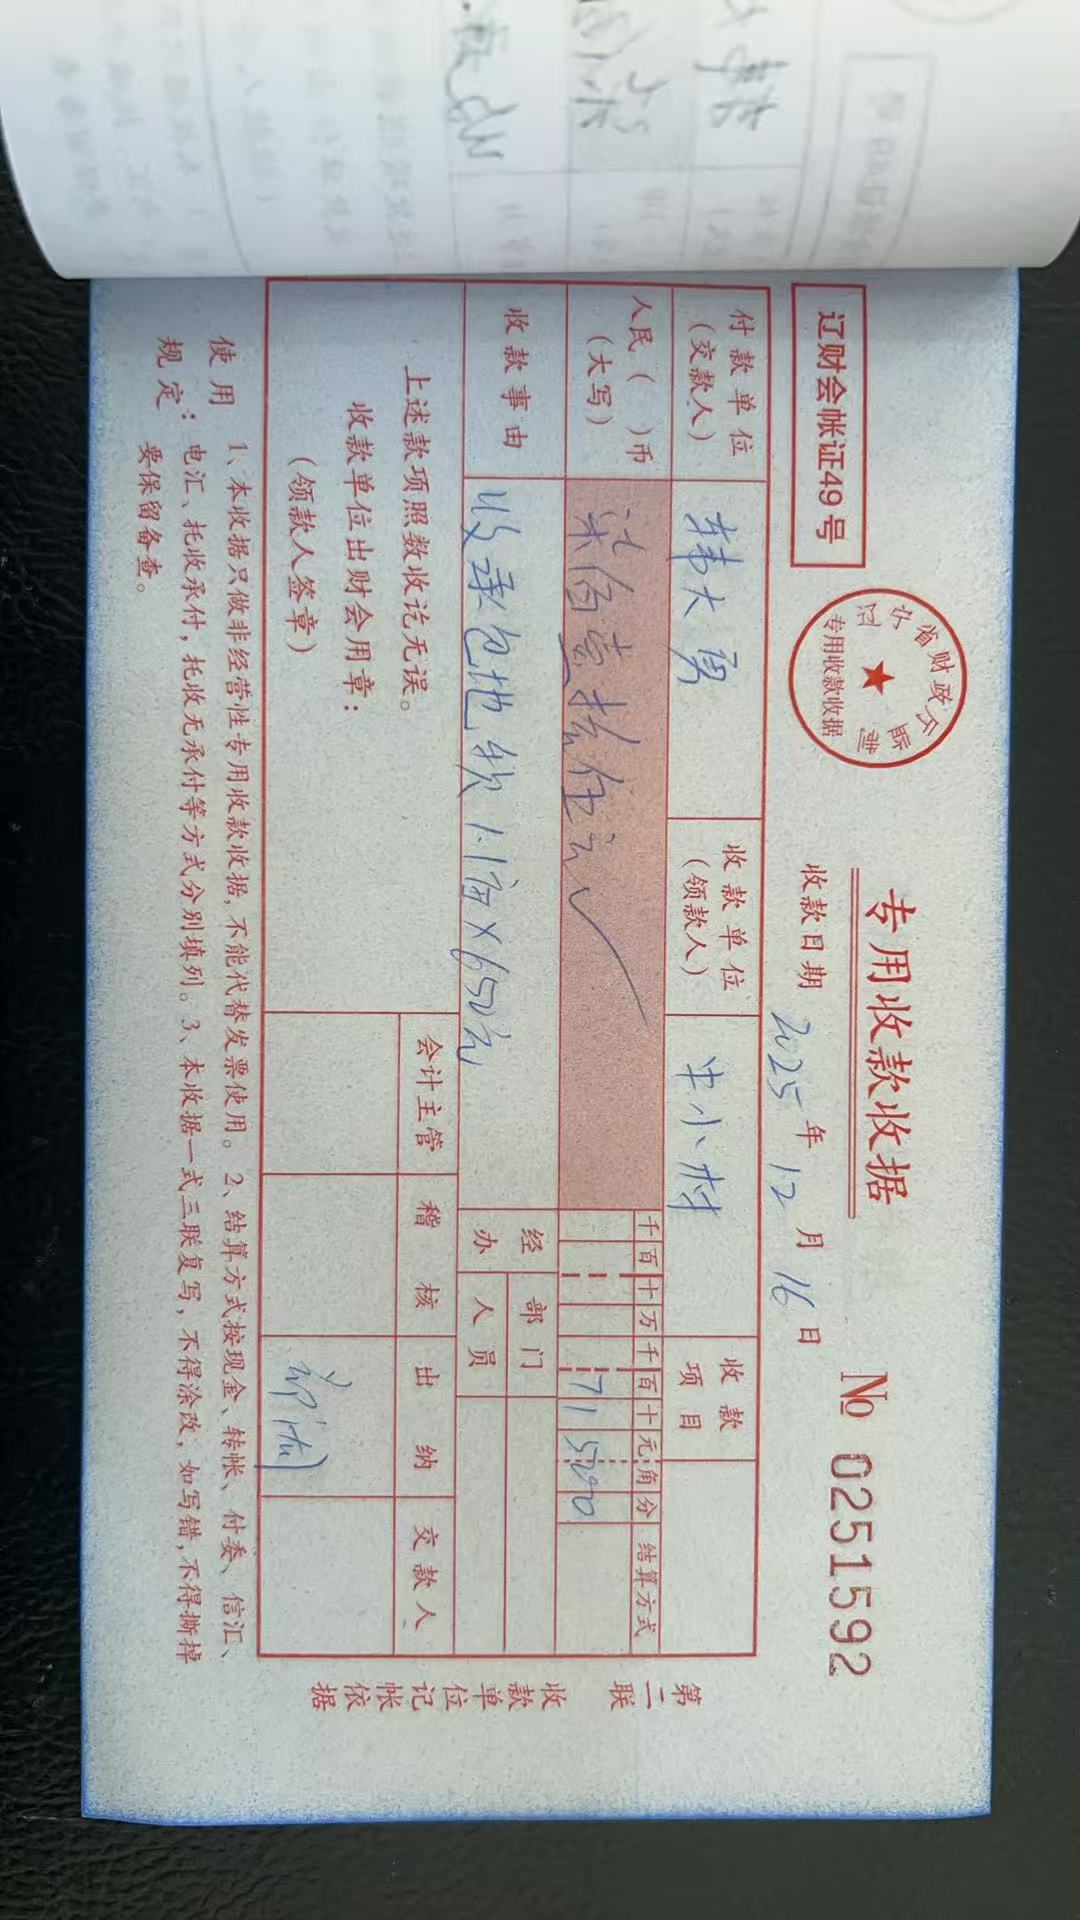 辽财会帐证49号
辽宁省财政厅监制
专用收款收据
专用收款收据
№ 0251592
收款日期 2025年12月16日
付款单位(交款人) 韩大勇 收款单位(领款人) 中小村 收款项目
人民( )币(大写) 柒佰壹拾伍元 千百十万千百十元角分 结算方式
71500
收款事由 收承包地款1.1亩×650元 经办 部门
人员
上述款项照数收讫无误。
收款单位出财会用章:
(领款人签章)
会计主管 稽核 出纳 交款人
使用规定: 1、本收据只做非经营性专用收款收据,不能代替发票使用。2、结算方式按现金、转帐、付委、信汇、
电汇、托收承付,托收无承付等方式分别填列。3、本收据一式三联复写,不得涂改,如写错,不得撕掉
要保留备查。
第二联 收款单位记帐依据